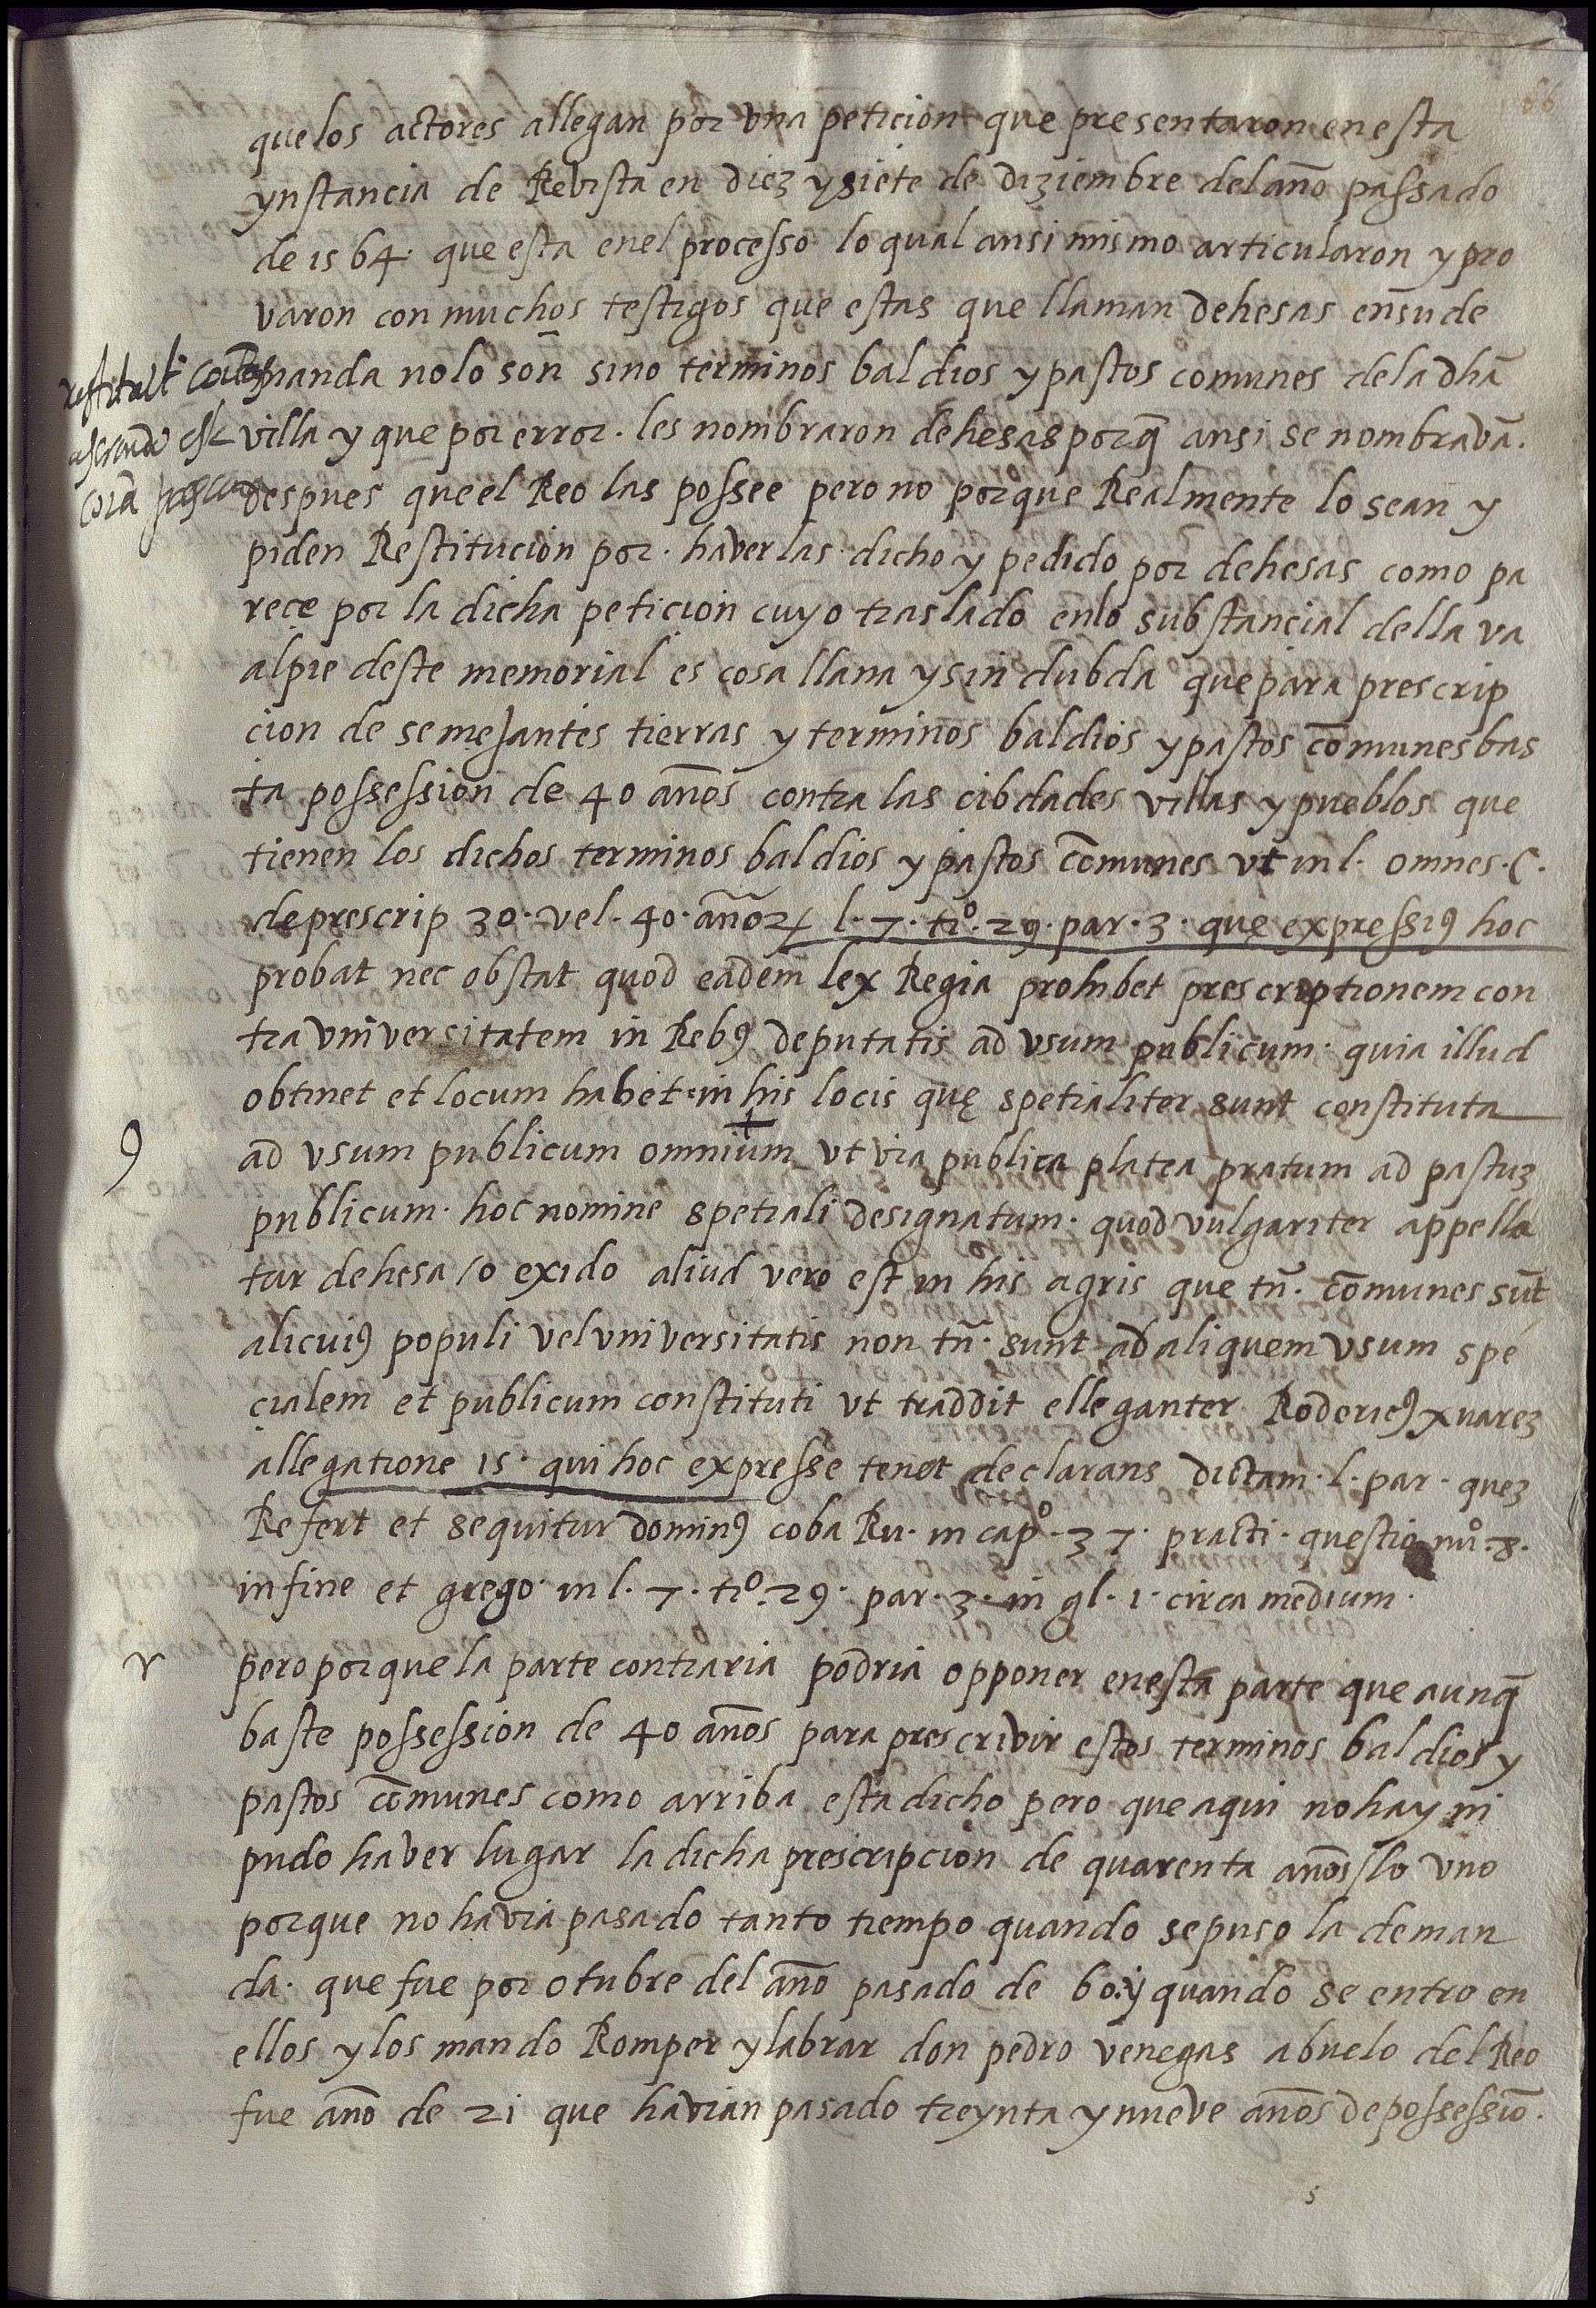 66
que los actores allegan por vna peticion que presentaron en esta
ynstancia de Revista en diez y siete de diziembre del año passado
de 1564. que esta en el processo lo qual ansi mismo articularon y pro
varon con muchos testigos que estas que llaman dehesas en su de
manda no lo son sino terminos baldios y pastos comunes de la dha
villa y que por error. les nombraron dehesas porq̃ ansi se nombravã.
despues que el Reo las possee pero no porque Realmente lo sean y
piden Restitucion por. haverlas dicho y pedido por dehesas como pa
rece por la dicha peticion cuyo traslado en lo substancial della va
al pie deste memorial es cosa llana y sin dubda que para prescrip
cion de semejantes tierras y terminos baldios y pastos comunes bas
ta possession de 40 años contra las cibdades villas y pueblos que
tienen los dichos terminos baldios y pastos comunes vt in l. omnes. C.
de prescrip 30. vel. 40. añoꝝ l. 7. tiº. 29. par. 3. que expressiꝰ hoc
probat nec obstat quod eadem lex Regia prohibet prescriptionem con
tra vniversitatem in Rebꝰ deputatis ad vsum publicum. quia illud
obtinet et locum habet in his locis quę spetialiter sunt constituta
9 ad vsum publicum omnium vt via publica platea pratum ad pastuz
publicum. hoc nomine spetiali designatum. quod vulgariter appella
tur dehesa / o exido aliud vero est in his agris que tñ. comunes sũt
alicuiꝰ populi vel vniversitatis non tñ. sunt ad aliquem vsum spe
cialem et publicum constituti vt traddit elleganter Rodericꝰ xuarez
allegatione 15. qui hoc expresse tenet declarans dictam. l. par. quez
Refert et sequitur dominꝰ coba Ru. in capº. 37. practi. questio nuº. 8.
in fine et grego. in l. 7. tiº. 29. par. 3. in gl. 1. circa medium.
r pero porque la parte contraria podria opponer en esta parte que aunq̃
baste possession de 40 años para prescrivir estos terminos baldios y
pastos comunes como arriba esta dicho pero que aqui no hay ni
pudo haver lugar la dicha prescripcion de quarenta años lo vno
porque no havia pasado tanto tiempo quando se puso la deman
da. que fue por otubre del año pasado de 60. y quando se entro en
ellos y los mando Romper y labrar don pedro venegas abuelo del Reo
fue año de 21 que havian pasado treynta y nueve años de possessiõ.